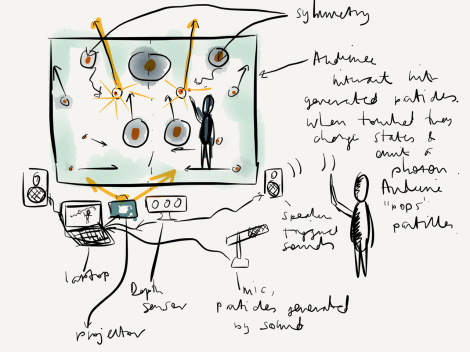 symmetry
Audience
interact with
generated particles.
When touched they
change states &
emit a
photon.
Audience
"pops"
particles.
speaker
triggered
sounds
laptop
Depth
sensor
mic,
particles generated
by sound
projector